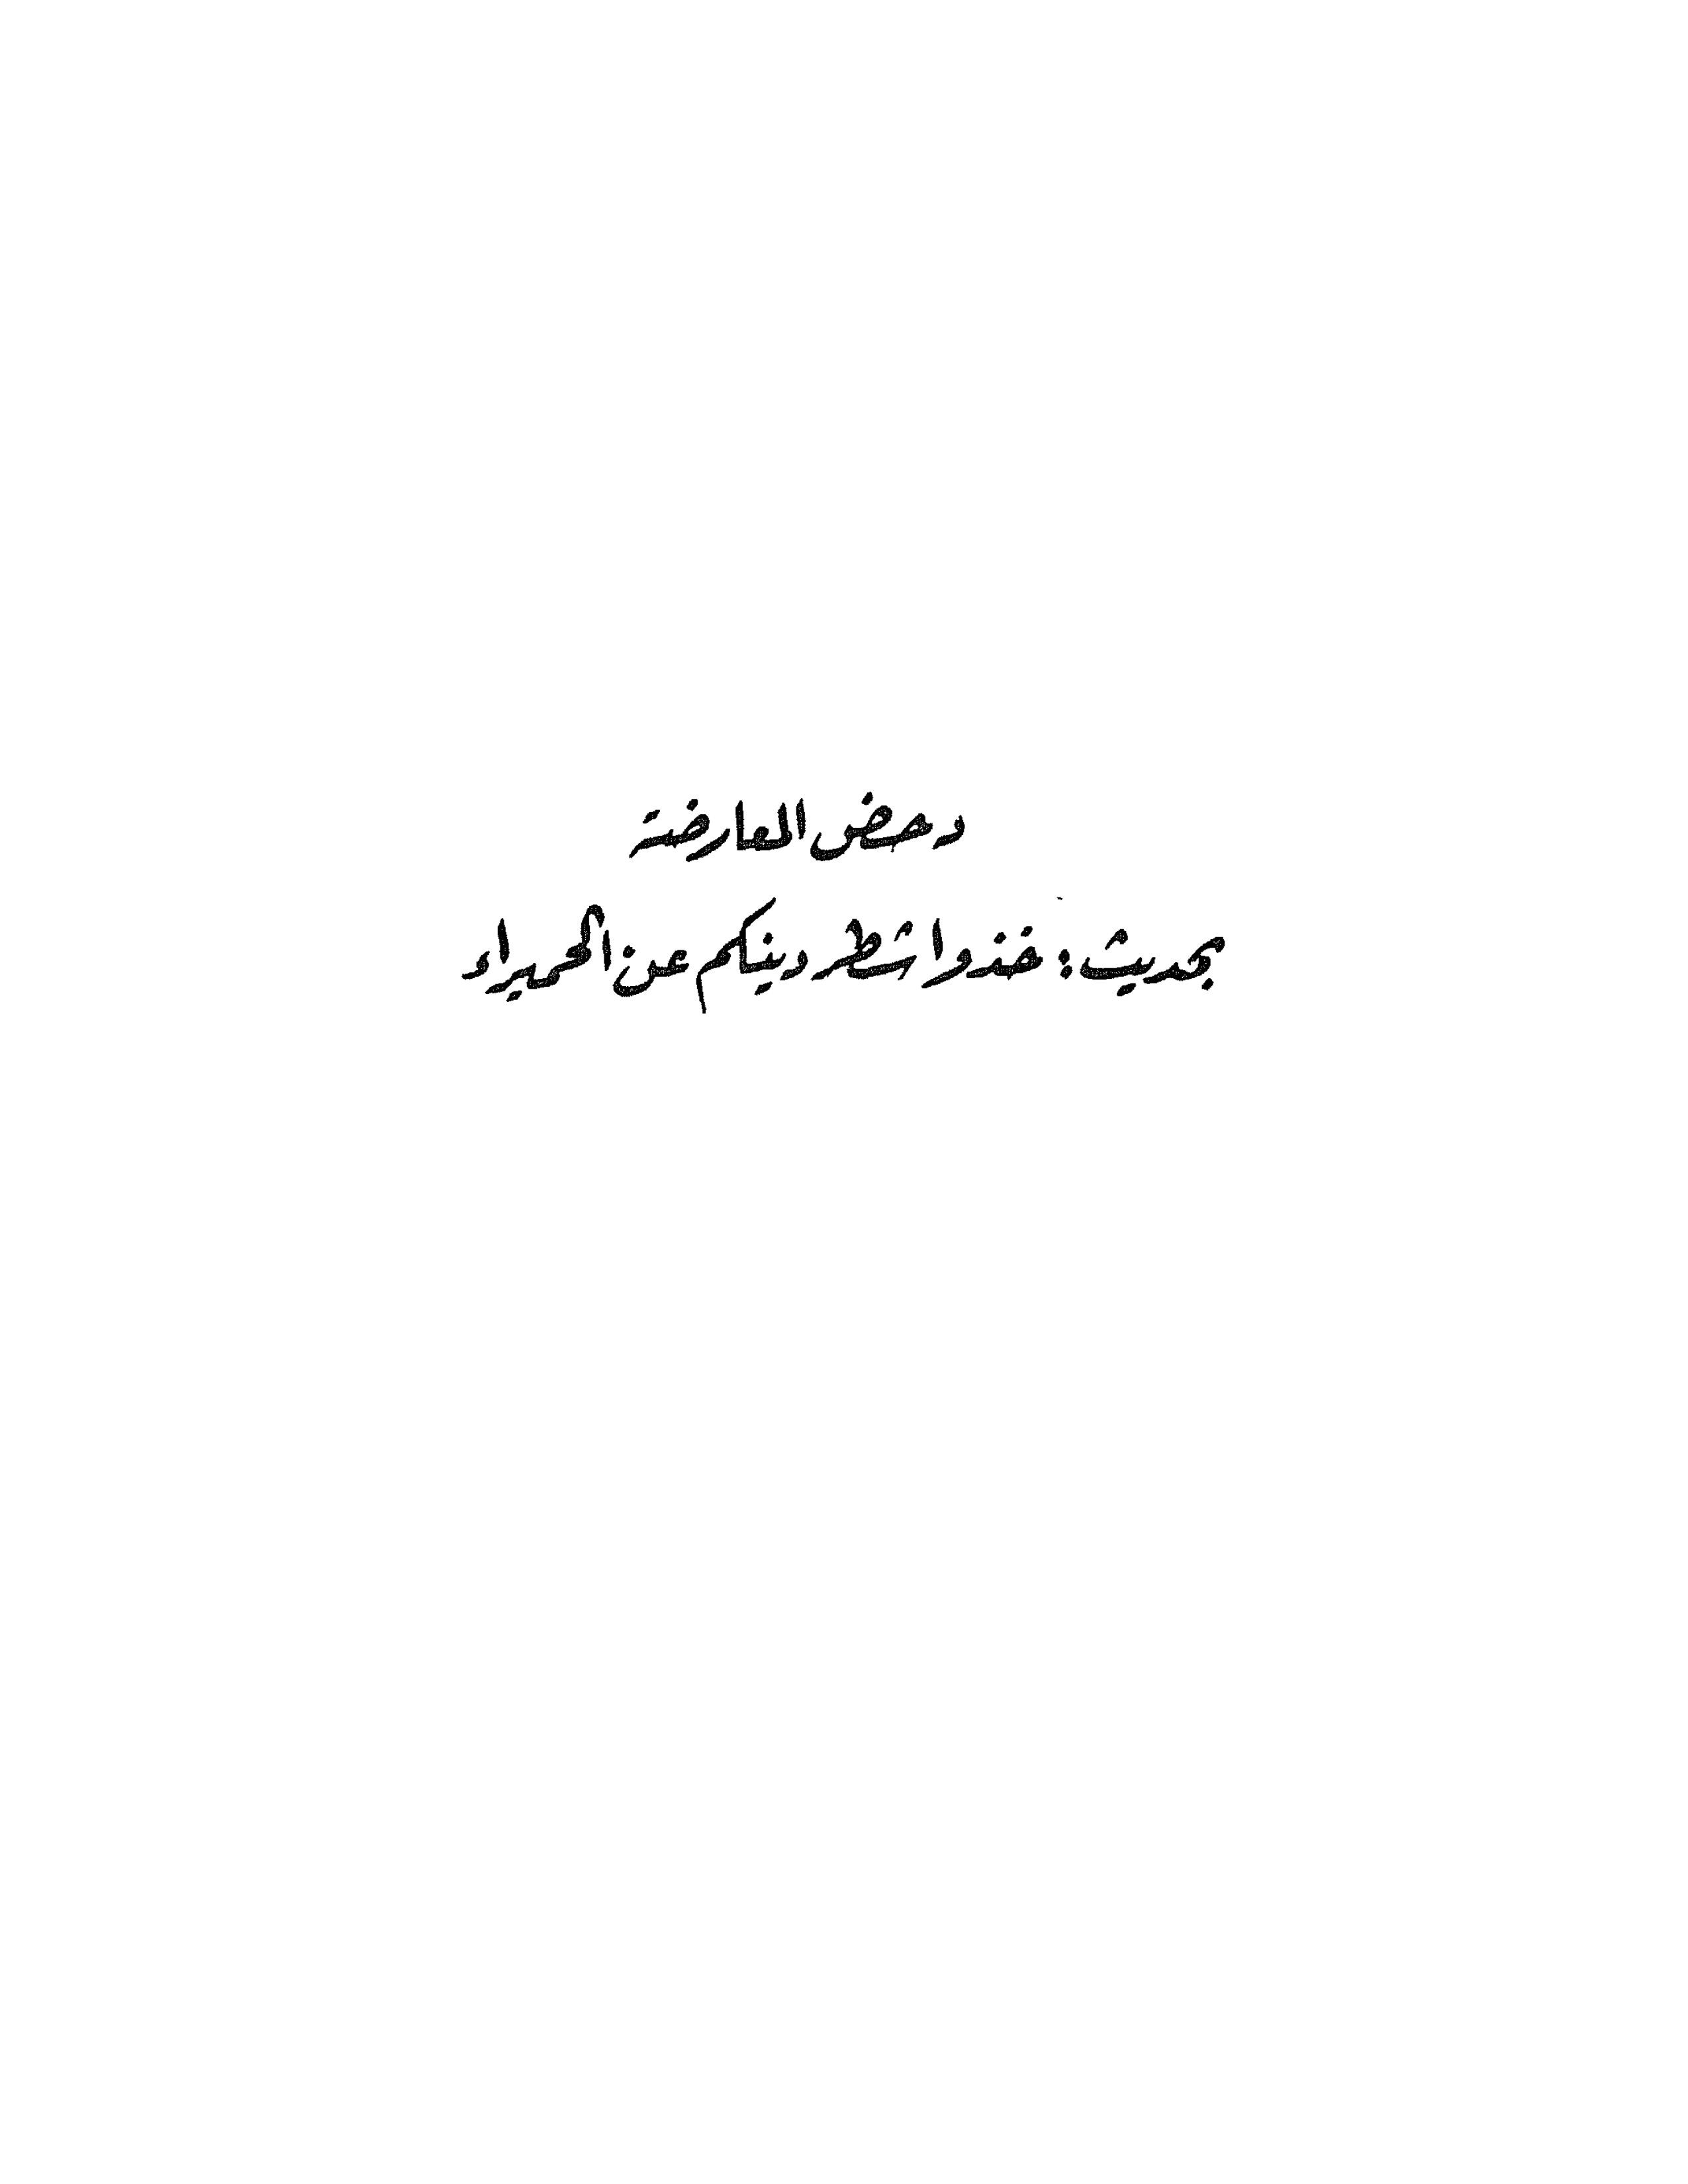 دحض المعارضة
بحديث: خذوا شطر دينكم عن الحميراء